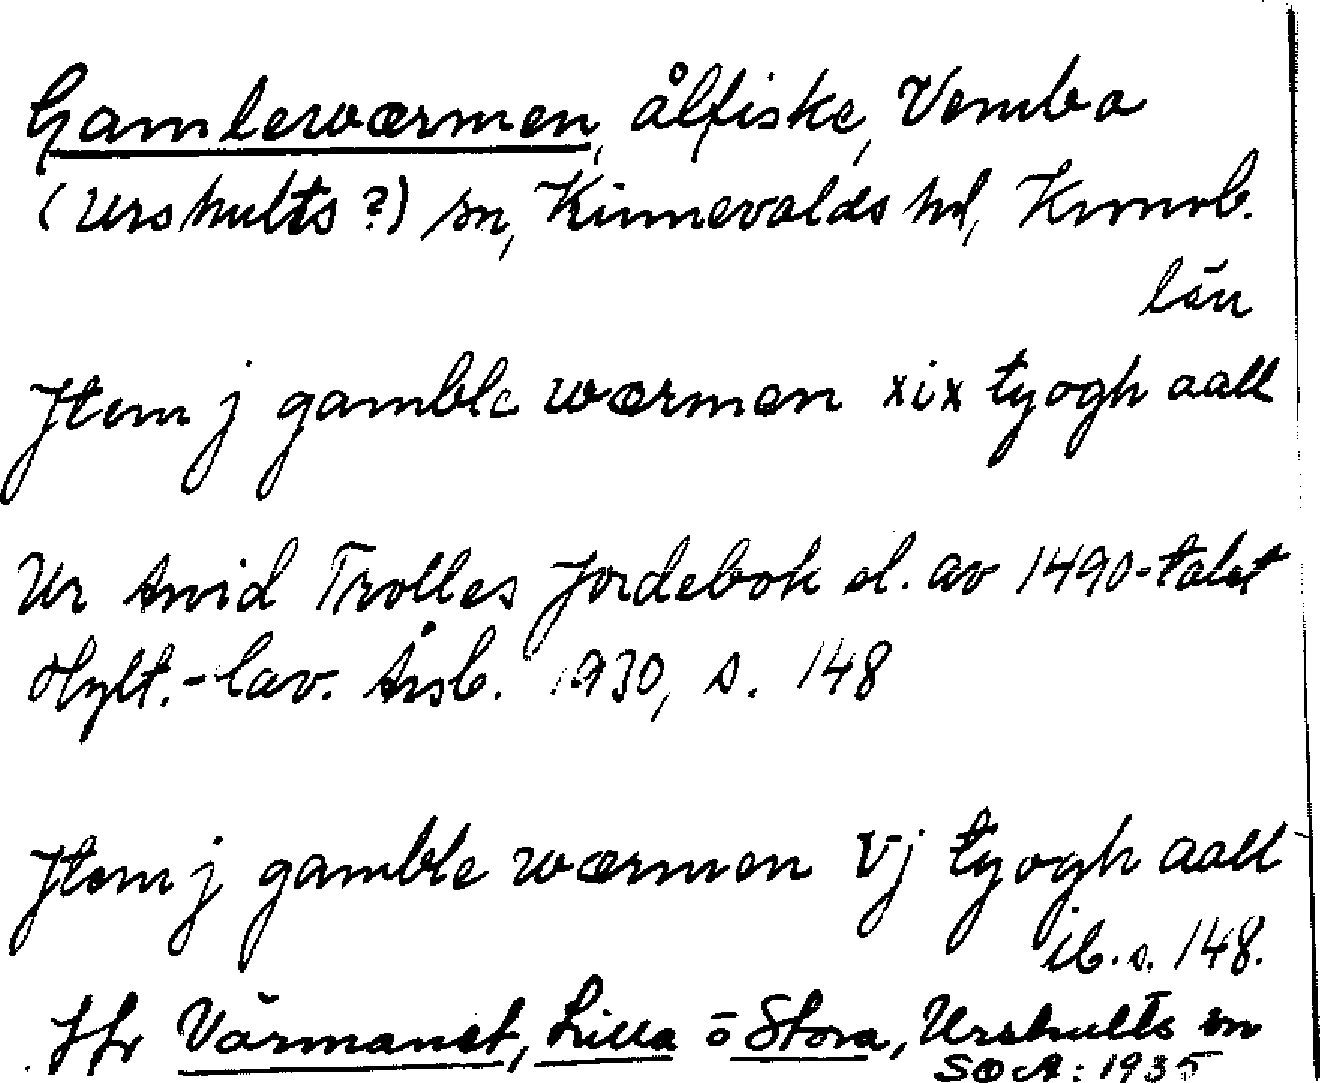 Gamlewærmen, ålfiske, Vemba
(Urshults?) sn, Kinnevalds hd, Kronob.
län
Jtem j gamble wærmen xix tyogh aall
Ur Arvid Trolles Jordebok sl. av 1490-talet
Hylt.-Cav. Årsb. 1930, s. 148
Jtem j gamble wærmen Vj tyogh aall
ib. s. 148.
Jfr Värmanet, Lilla o Stora, Urshults sn
SOA: 1935